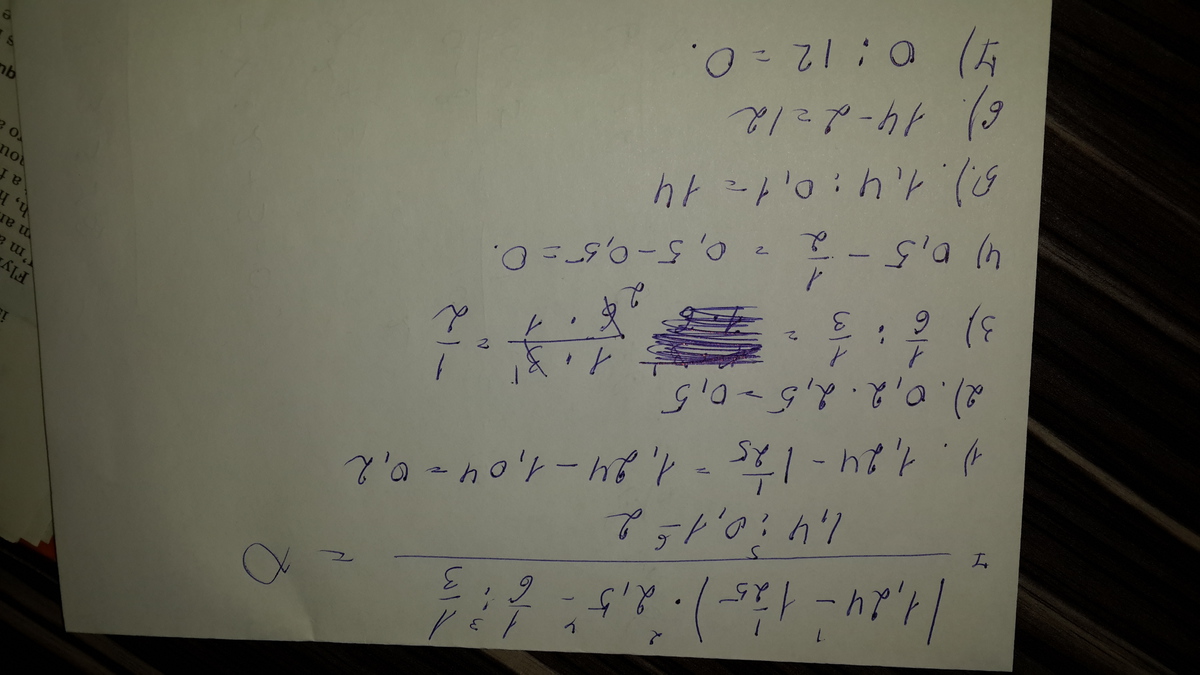 (1,24 - 1 1/25) · 2,5 - 1/6 : 1/3
= 0
1,4 : 0,1 - 2
1) 1,24 - 1 1/25 = 1,24 - 1,04 = 0,2
2) 0,2 · 2,5 = 0,5
3) 1/6 : 1/3 = 1·3/6·1 = 1/2
4) 0,5 - 1/2 = 0,5 - 0,5 = 0.
5) 1,4 : 0,1 = 14
6) 14 - 2 = 12
7) 0 : 12 = 0.